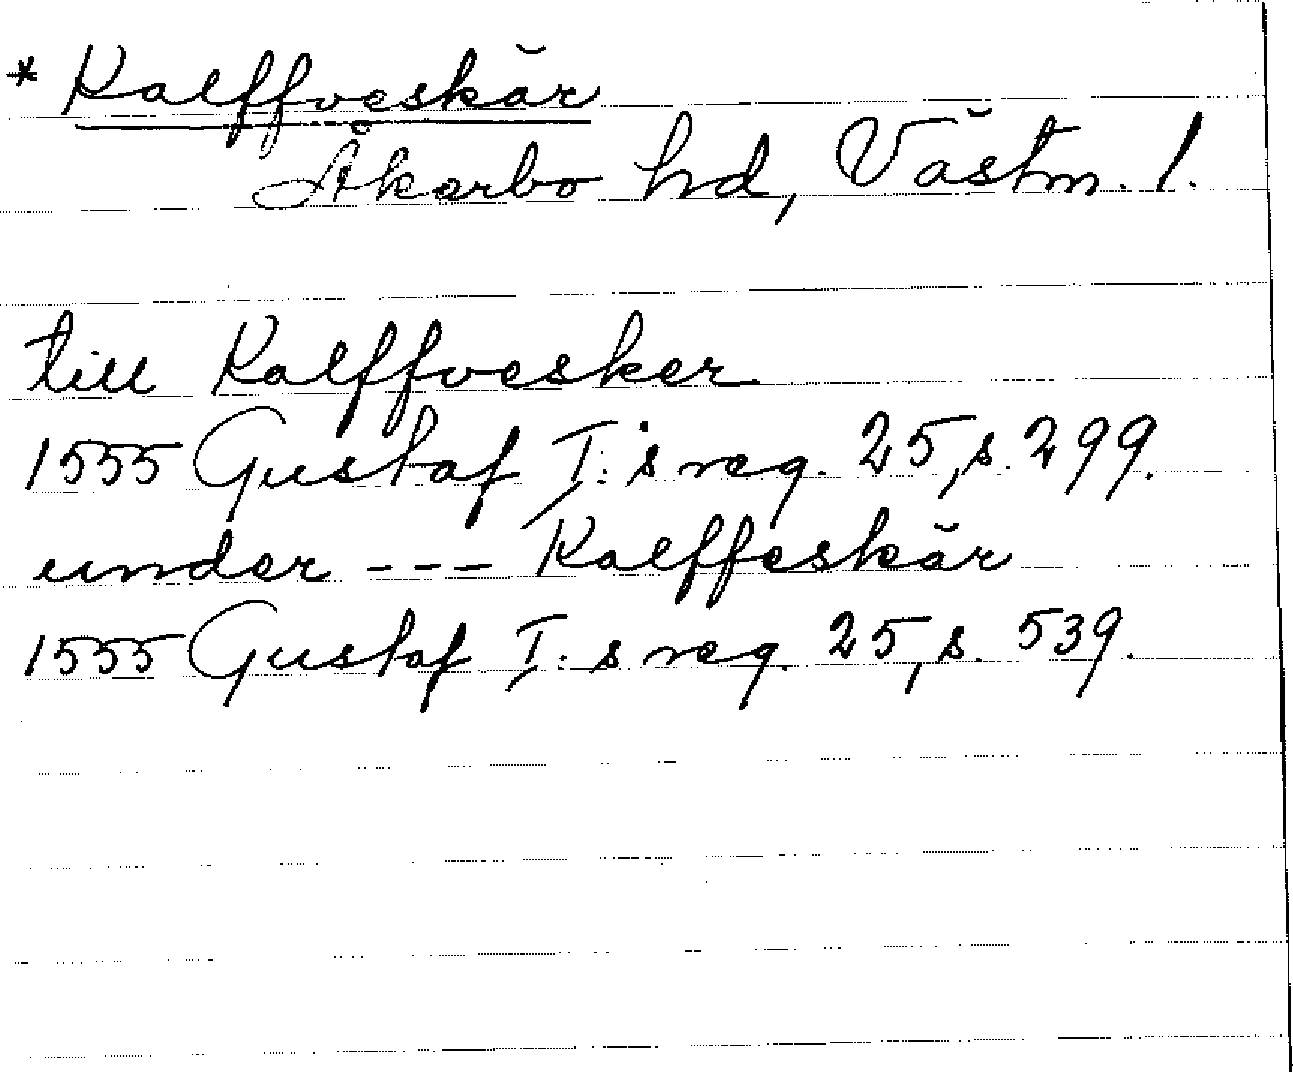 * Kalffveskär
Åkerbo hd, Västm. l.
till Kalffvesker
1555 Gustaf I:s reg. 25, s. 299.
under --- Kalffeskär
1555 Gustaf I:s reg. 25, s. 539.